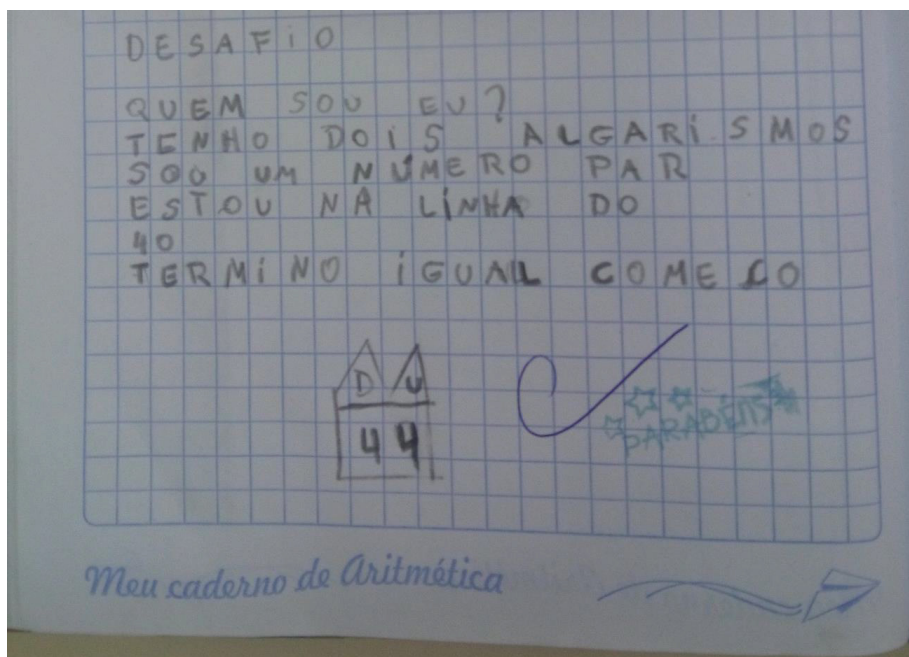 DESAFIO
QUEM SOU EU?
TENHO DOIS ALGARISMOS
SOU UM NÚMERO PAR
ESTOU NA LINHA DO
40
TERMINO IGUAL COMEÇO
D U
44
PARABÉNS
Meu caderno de Aritmética